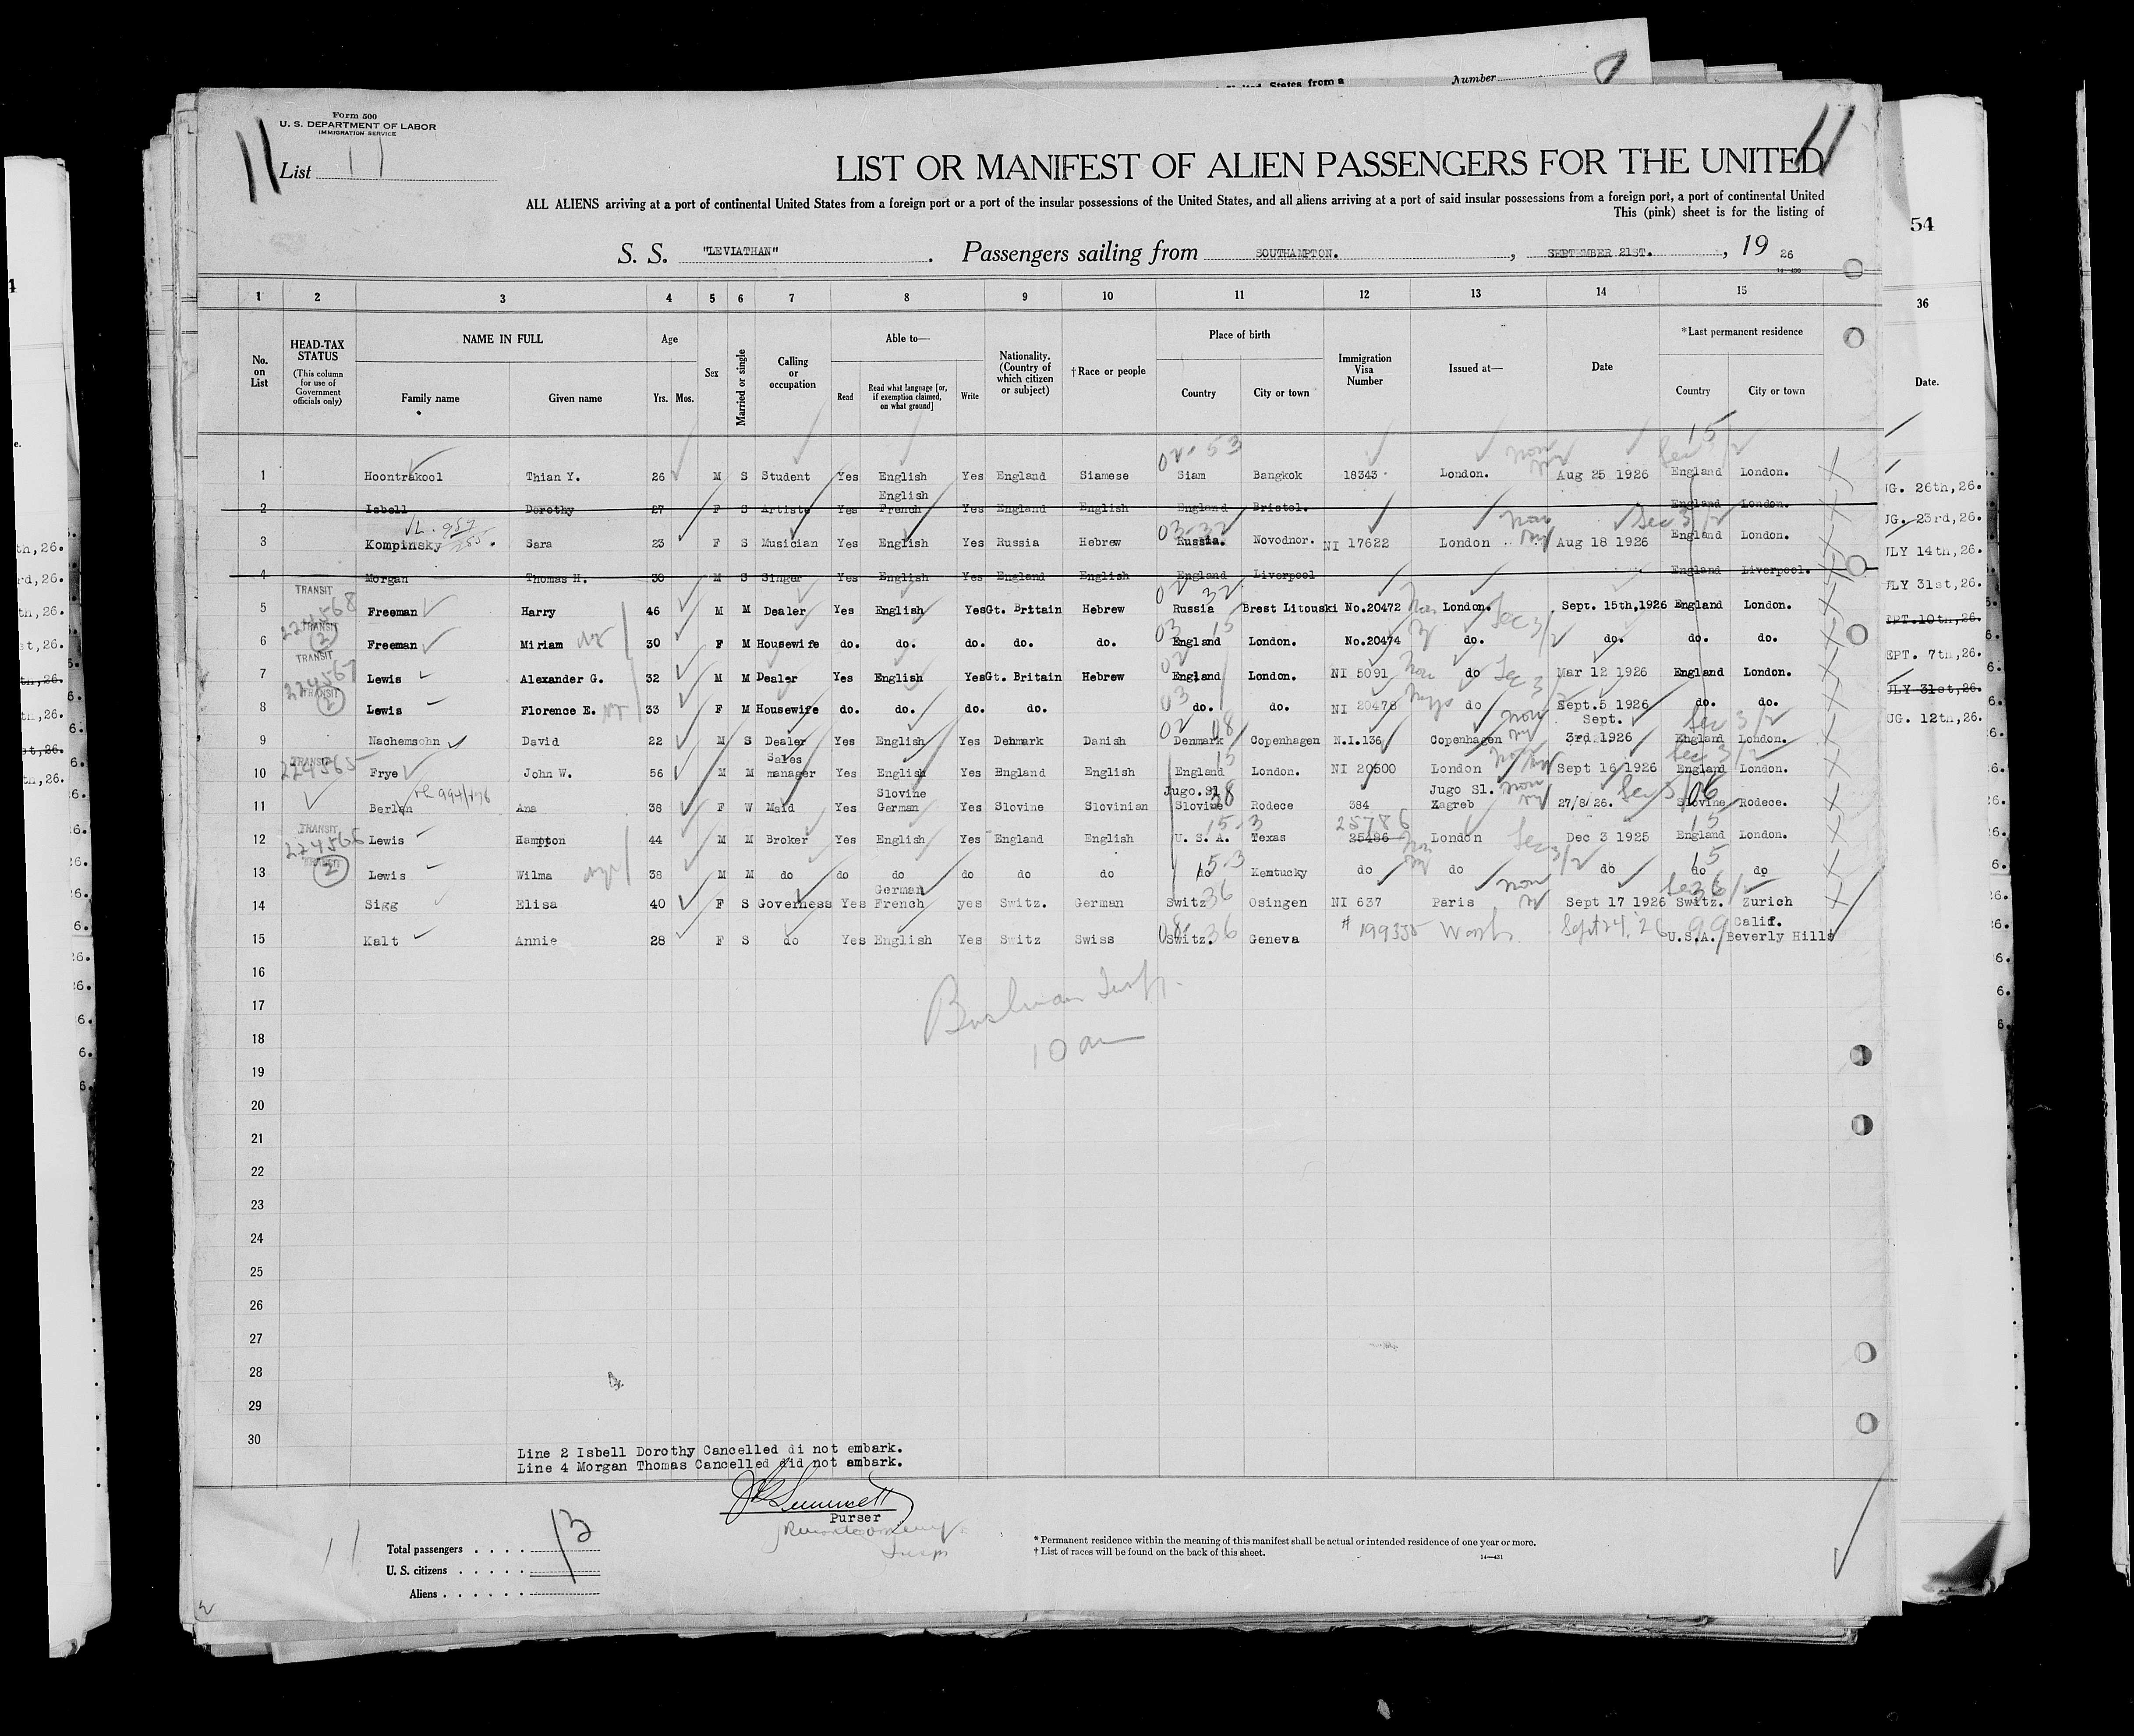 United States from a
Number
Form 500
U. S. DEPARTMENT OF LABOR
IMMIGRATION SERVICE
11
11
List 11
LIST OR MANIFEST OF ALIEN PASSENGERS FOR THE UNITED
ALL ALIENS arriving at a port of continental United States from a foreign port or a port of the insular possessions of the United States, and all aliens arriving at a port of said insular possessions from a foreign port, a port of continental United
This (pink) sheet is for the listing of
S. S. "LEVIATHAN" . Passengers sailing from SOUTHAMPTON. , SEPTEMBER 21ST. , 19 26
14—430
1 2 3 4 5 6 7 8 9 10 11 12 13 14 15
No. on List
HEAD-TAX STATUS
(This column for use of Government officials only)
NAME IN FULL
Family name Given name
Age
Yrs. Mos.
Sex
Married or single
Calling or occupation
Able to—
Read
Read what language [or, if exemption claimed, on what ground]
Write
Nationality. (Country of which citizen or subject)
†Race or people
Place of birth
Country City or town
Immigration Visa Number
Issued at—
Date
*Last permanent residence
Country City or town
1 Hoontrakool Thian Y. 26 M S Student Yes English Yes England Siamese Siam Bangkok 18343 London. Aug 25 1926 England London.
2 Isbell Dorothy 27 F S Artiste Yes English French Yes England English England Bristol. England London.
3 Kompinsky Sara 23 F S Musician Yes English Yes Russia Hebrew Russia. Novodnor. NI 17622 London Aug 18 1926 England London.
4 Morgan Thomas H. 30 M S Singer Yes English Yes England English England Liverpool England Liverpool.
TRANSIT
224568
5 Freeman Harry 46 M M Dealer Yes English Yes Gt. Britain Hebrew Russia Brest Litouski No.20472 London. Sept. 15th,1926 England London.
TRANSIT
2
6 Freeman Miriam 30 F M Housewife do. do. do. do. do. England London. No.20474 do. do. do. do.
TRANSIT
224567
7 Lewis Alexander G. 32 M M Dealer Yes English Yes Gt. Britain Hebrew England London. NI 5091 do Mar 12 1926 England London.
TRANSIT
2
8 Lewis Florence E. 33 F M Housewife do. do. do. do. do. do. NI 20478 do Sept.5 1926 do. do.
9 Nachemsohn David 22 M S Dealer Yes English Yes Denmark Danish Denmark Copenhagen N.I.136 Copenhagen Sept. 3rd 1926 England London.
TRANSIT
224565
10 Frye John W. 56 M M Sales manager Yes English Yes England English England London. NI 20500 London Sept 16 1926 England London.
11 Berlan Ana 38 F W Maid Yes Slovine German Yes Slovine Slovinian Jugo.Sl Slovine Rodece 384 Jugo Sl. Zagreb 27/8/26. Slovine Rodece.
TRANSIT
224566
12 Lewis Hampton 44 M M Broker Yes English Yes England English U. S. A. Texas 25486 25786 London Dec 3 1925 England London.
2
13 Lewis Wilma 38 M M do do do do do do do Kentucky do do do do do
14 Sigg Elisa 40 F S Governess Yes German French yes Switz. German Switz Osingen NI 637 Paris Sept 17 1926 Switz. Zurich
15 Kalt Annie 28 F S do Yes English Yes Switz Swiss Switz. Geneva # 199355 Wash Sept 24, '26 U.S.A. Calif. Beverly Hills
16
17
18
10 am
19
20
21
22
23
24
25
26
27
28
29
30
Line 2 Isbell Dorothy Cancelled di not embark.
Line 4 Morgan Thomas Cancelled did not ambark.
Purser
Total passengers . . . . 13
U. S. citizens . . . . .
Aliens . . . . . .
11
* Permanent residence within the meaning of this manifest shall be actual or intended residence of one year or more.
† List of races will be found on the back of this sheet.
14—431
54
36
Date.
UG. 26th,26.
UG. 23rd,26.
ULY 14th,26.
ULY 31st,26.
EPT.10th,26.
EPT. 7th,26.
ULY 31st,26.
UG. 12th,26.